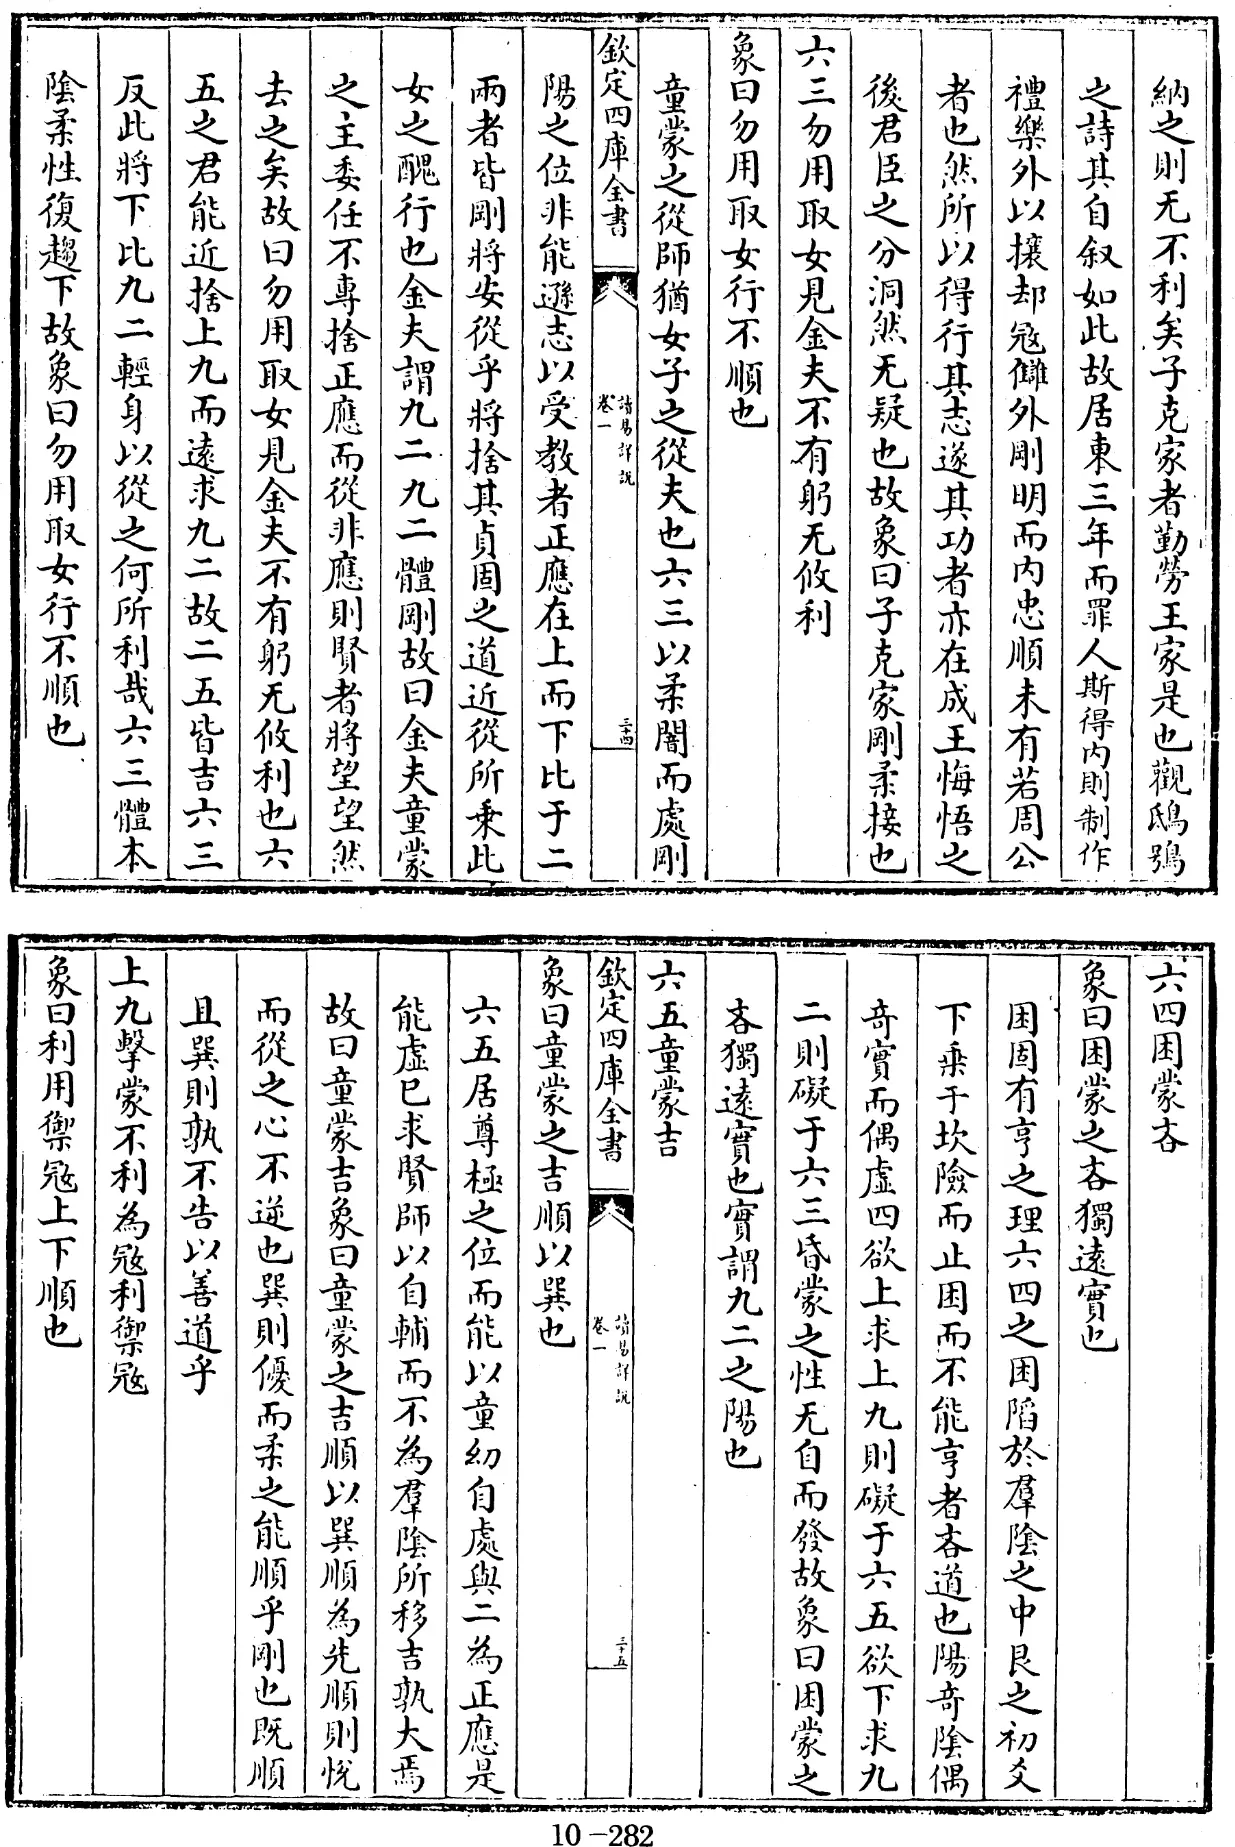 納之則无不利矣子克家者勤勞王家是也觀鴟鴞
之詩其自叙如此故居東三年而罪人斯得内則制作
禮樂外以攘却冦讎外剛明而内忠順未有若周公
者也然所以得行其志遂其功者亦在成王悔悟之
後君臣之分洞然无疑也故象曰子克家剛柔接也
六三勿用取女見金夫不有躬无攸利
象曰勿用取女行不順也
童蒙之從師猶女子之從夫也六三以柔闇而處剛
欽定四庫全書
讀易詳說
卷一
三十四
陽之位非能遜志以受教者正應在上而下比于二
兩者皆剛將安從乎將捨其貞固之道近從所乗此
女之醜行也金夫謂九二九二體剛故曰金夫童蒙
之主委任不專捨正應而從非應則賢者將望望然
去之矣故曰勿用取女見金夫不有躬无攸利也六
五之君能近捨上九而遠求九二故二五皆吉六三
反此將下比九二輕身以從之何所利哉六三體本
陰柔性復趨下故象曰勿用取女行不順也
六四困蒙吝
象曰困蒙之吝獨遠實也
困固有亨之理六四之困陷於羣陰之中艮之初爻
下乗于坎險而止困而不能亨者吝道也陽奇陰偶
奇實而偶虛四欲上求上九則礙于六五欲下求九
二則礙于六三昏蒙之性无自而發故象曰困蒙之
吝獨遠實也實謂九二之陽也
六五童蒙吉
欽定四庫全書
讀易詳說
卷一
三十五
象曰童蒙之吉順以巽也
六五居尊極之位而能以童幼自處與二為正應是
能虛已求賢師以自輔而不為羣陰所移吉孰大焉
故曰童蒙吉象曰童蒙之吉順以巽順為先順則悅
而從之心不逆也巽則優而柔之能順乎剛也既順
且巽則孰不告以善道乎
上九擊蒙不利為冦利禦冦
象曰利用禦冦上下順也
10-282